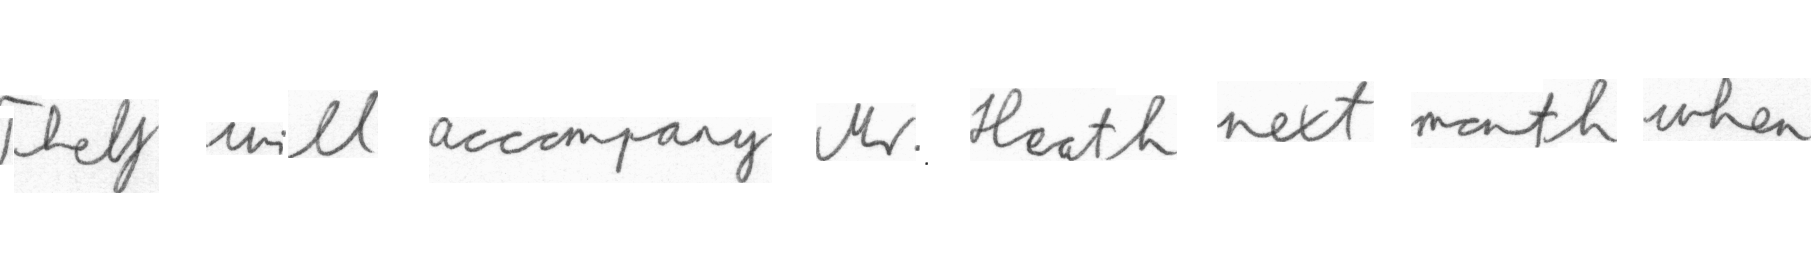 They will accompany Mr. Heath next month when